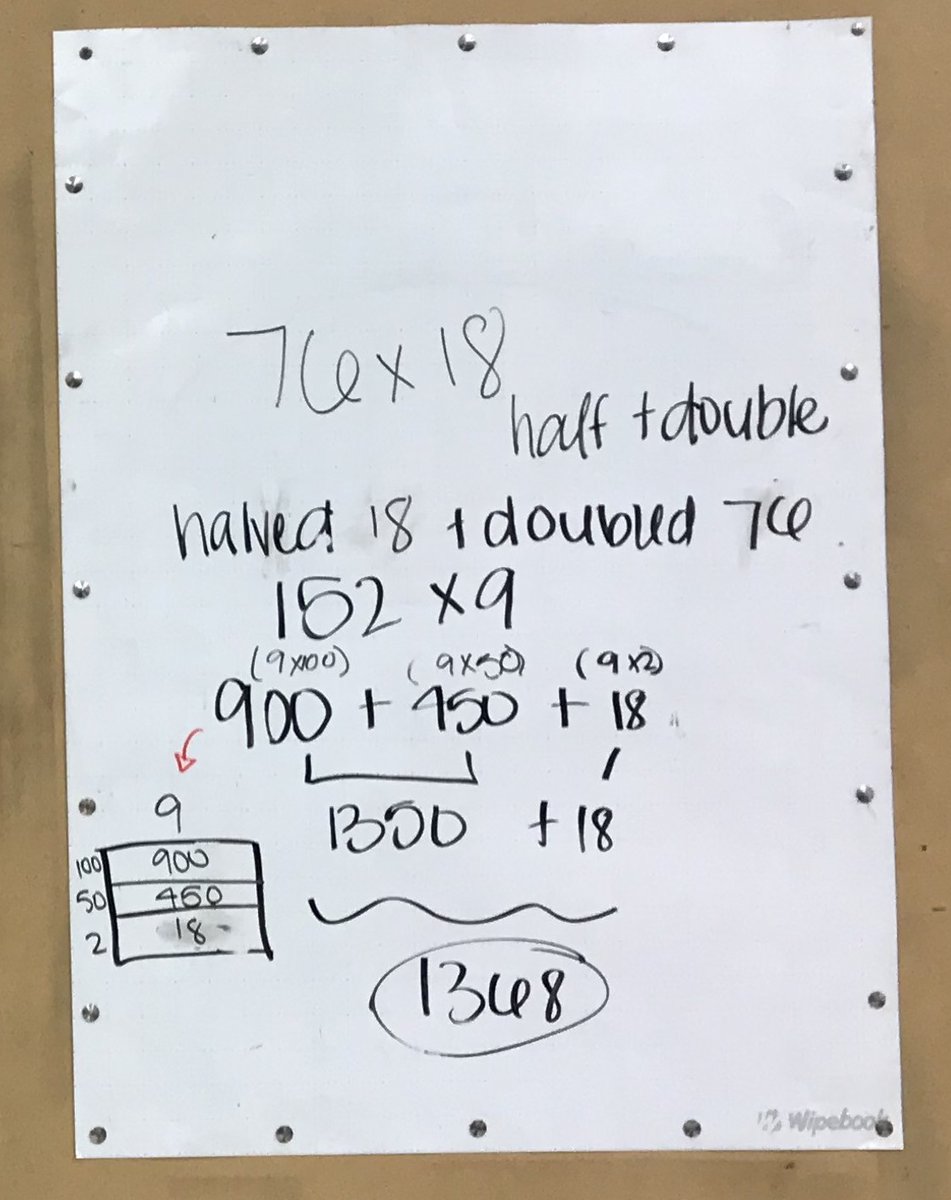 76 x 18
half + double
halved 18 + doubled 76
152 x 9
(9x100) (9x50) (9x2)
900 + 450 + 18
1350 + 18
9
100 900
50 450
2 18
1368
Wipebook